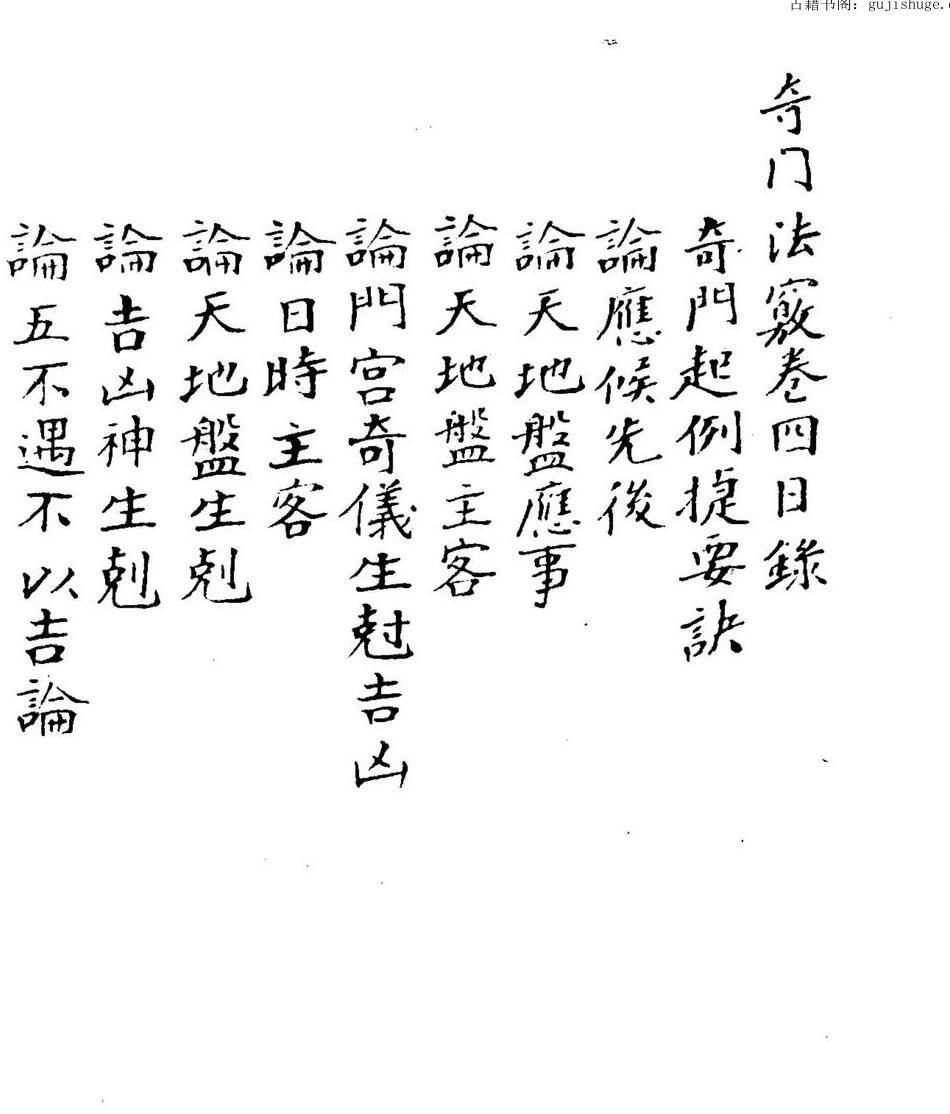 古籍书阁：gujishuge.
奇门法竅卷四日錄
奇門起例捷要訣
論應候先後
論天地盤應事
論天地盤主客
論門宮奇儀生尅吉凶
論日時主客
論天地盤生剋
論吉凶神生剋
論五不遇不以吉論